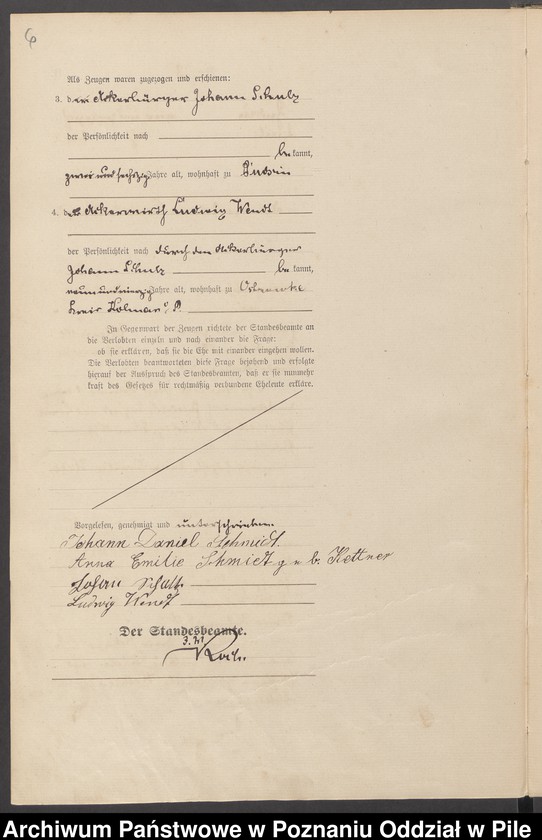 6
Als Zeugen waren zugezogen und erschienen:
3. der Ackerbürger Johann Schulz
der Persönlichkeit nach
bekannt,
zwei und sechszig Jahre alt, wohnhaft zu Budsin
4. der Ackerwirth Ludwig Wendt
der Persönlichkeit nach durch den Ackerbürger
Johann Schulz bekannt,
neunundvierzig Jahre alt, wohnhaft zu Ostrowke
Kreis Kolmar i/P.
In Gegenwart der Zeugen richtete der Standesbeamte an
die Verlobten einzeln und nach einander die Frage:
ob sie erklären, daß sie die Ehe mit einander eingehen wollen.
Die Verlobten beantworteten diese Frage bejahend und erfolgte
hierauf der Ausspruch des Standesbeamten, daß er sie nunmehr
kraft des Gesetzes für rechtmäßig verbundene Eheleute erkläre.
Vorgelesen, genehmigt und unterschrieben.
Johann Daniel Schmidt.
Anna Emilie Schmidt geb. Kettner
Johan Schultz
Ludwig Wendt
Der Standesbeamte.
Archiwum Państwowe w Poznaniu Oddział w Pile